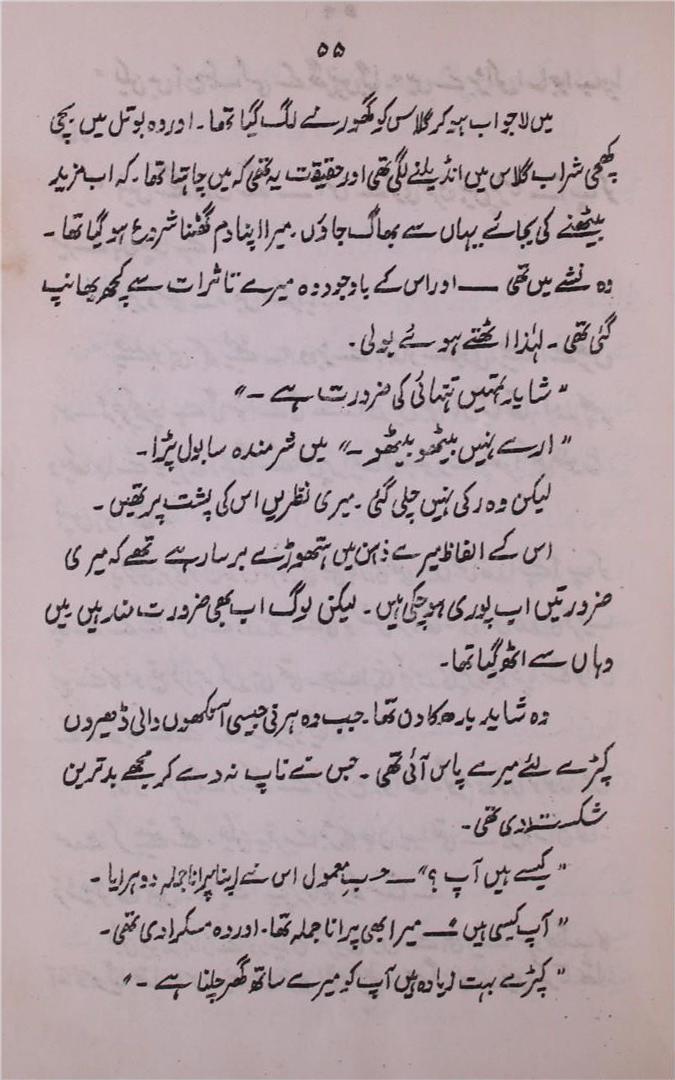 ۵۵
میں لاجواب ہو کر گلاس کو گھورنے لگ گیا تھا۔ اور وہ بوتل میں بچی
کھچی شراب گلاس میں انڈیلنے لگی تھی اور حقیقت یہ تھی کہ میں چاہتا تھا۔ کہ اب مزید
بیٹھنے کی بجائے یہاں سے بھاگ جاؤں۔ میرا اپنا دم گھٹنا شروع ہو گیا تھا۔
وہ نشے میں تھی — اور اس کے باوجود وہ میرے تاثرات سے کچھ بھانپ
گئی تھی۔ لہٰذا اٹھتے ہوئے بولی۔
"شاید تمہیں تنہائی کی ضرورت ہے۔"
"ارے نہیں بیٹھو بیٹھو۔" میں شرمندہ سا بول پڑا۔
لیکن وہ رکی نہیں چلی گئی۔ میری نظریں اس کی پشت پر تھیں۔
اس کے الفاظ میرے ذہن میں ہتھوڑے برسا رہے تھے کہ میری
ضرورتیں اب پوری ہو چکی ہیں۔ لیکن لوگ اب بھی ضرورت مند ہیں میں
وہاں سے اٹھ گیا تھا۔
وہ شاید بدھ کا دن تھا۔ جب وہ ہرنی جیسی آنکھوں والی ڈھیروں
کپڑے لئے میرے پاس آئی تھی۔ جس نے ناپ نہ دے کر مجھے بدترین
شکست دی تھی۔
"کیسے ہیں آپ ؟" — حسب معمول اس نے اپنا پرانا جملہ دوہرایا۔
"آپ کیسی ہیں" — میرا بھی پرانا جملہ تھا۔ اور وہ مسکرا دی تھی۔
"کپڑے بہت زیادہ ہیں آپ کو میرے ساتھ گھر چلنا ہے۔"